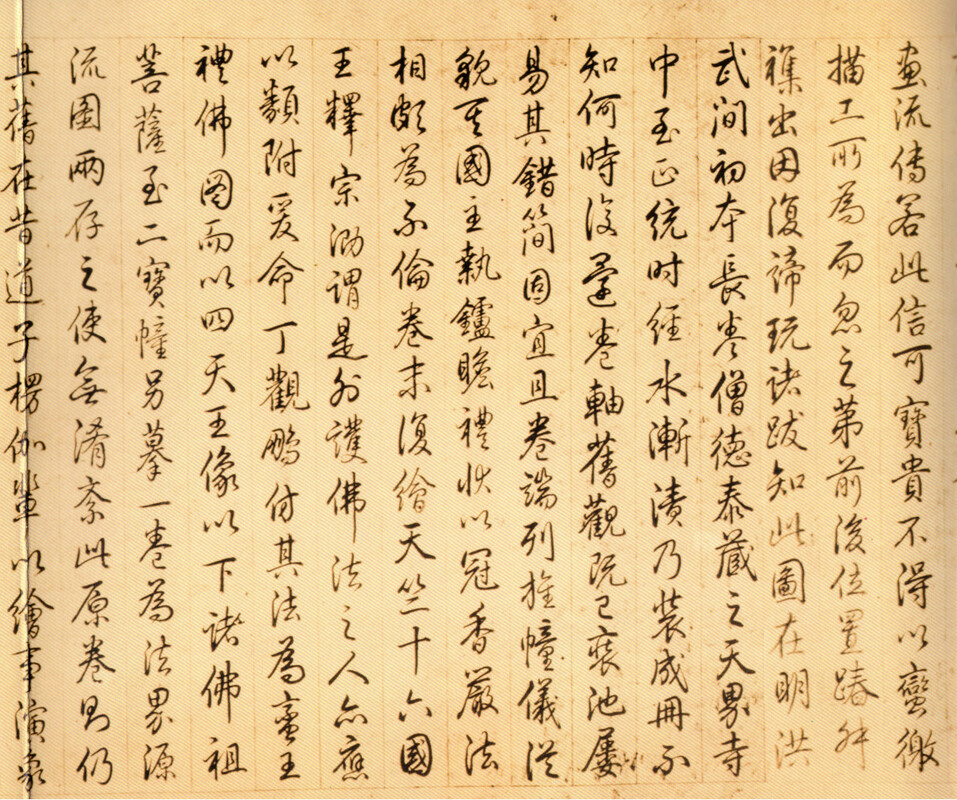 畫流傳若此信可寶貴不得以蠻徼
描工所為而忽之第前後位置踳舛
襍出因復諦玩諸跋知此圖在明洪
武間初本長卷僧德泰藏之天界寺
中至正統时經水漸漬乃裝成冊不
知何時復還卷軸舊觀既已裝池屢
易其錯簡固宜且卷端列旌幢儀從
貌其國主執鑪瞻禮狀以冠香嚴法
相頗為不倫卷末復繪天竺十六國
王釋宗泐謂是外護佛法之人亦應
以類附爰命丁觀鵬仿其法為蠻王
禮佛图而以四天王像以下諸佛祖
菩薩至二寶幢另摹一卷為法界源
流圖兩存之使無淆紊此原卷則仍
其舊在昔道子楞伽輩以繪事演象